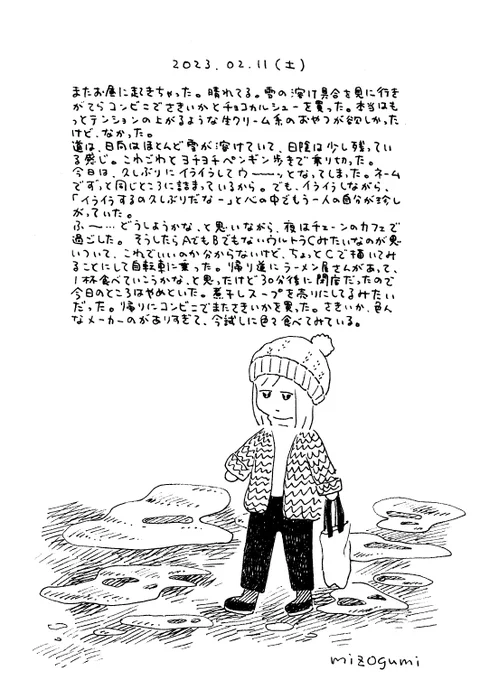 2023.02.11(土)
またお昼に起きちゃった。晴れてる。雪の溶け具合を見に行き
がてらコンビニでさきいかとチョコカルシューを買った。本当はも
っとテンションの上がるような生クリーム系のおやつが欲しかった
けど、なかった。
道は、日向はほとんど雪が溶けていて、日陰は少し残ってい
る感じ。これごわとヨチヨチペンギン歩きで乗り切った。
今日は、久しぶりにイライラしてウ〜〜ッとなってしまった。ネーム
でずっと同じところに詰まっているから。でも、イライラしながら、
「イライラするの久しぶりだな〜」と心の中でもう一人の自分が珍し
がっていた。
ふ〜…どうしようかな、と思いながら、夜はチェーンのカフェで
過ごした。そうしたらAでもBでもないウルトラCみたいなのが思
いついて、これでいいのか分からないけど、ちょっとCで描いてみ
ることにして自転車に乗った。帰り道にラーメン屋さんがあって、
1杯食べていこうかな、と思ったけど30分後に閉店だったので
今日のところはやめといた。煮干しスープを売りにしてるみたい
だった。帰りにコンビニでまたさきいかを買った。さきいか、色ん
なメーカーのがありすぎて、今試しに色々食べてみている。
mizogumi